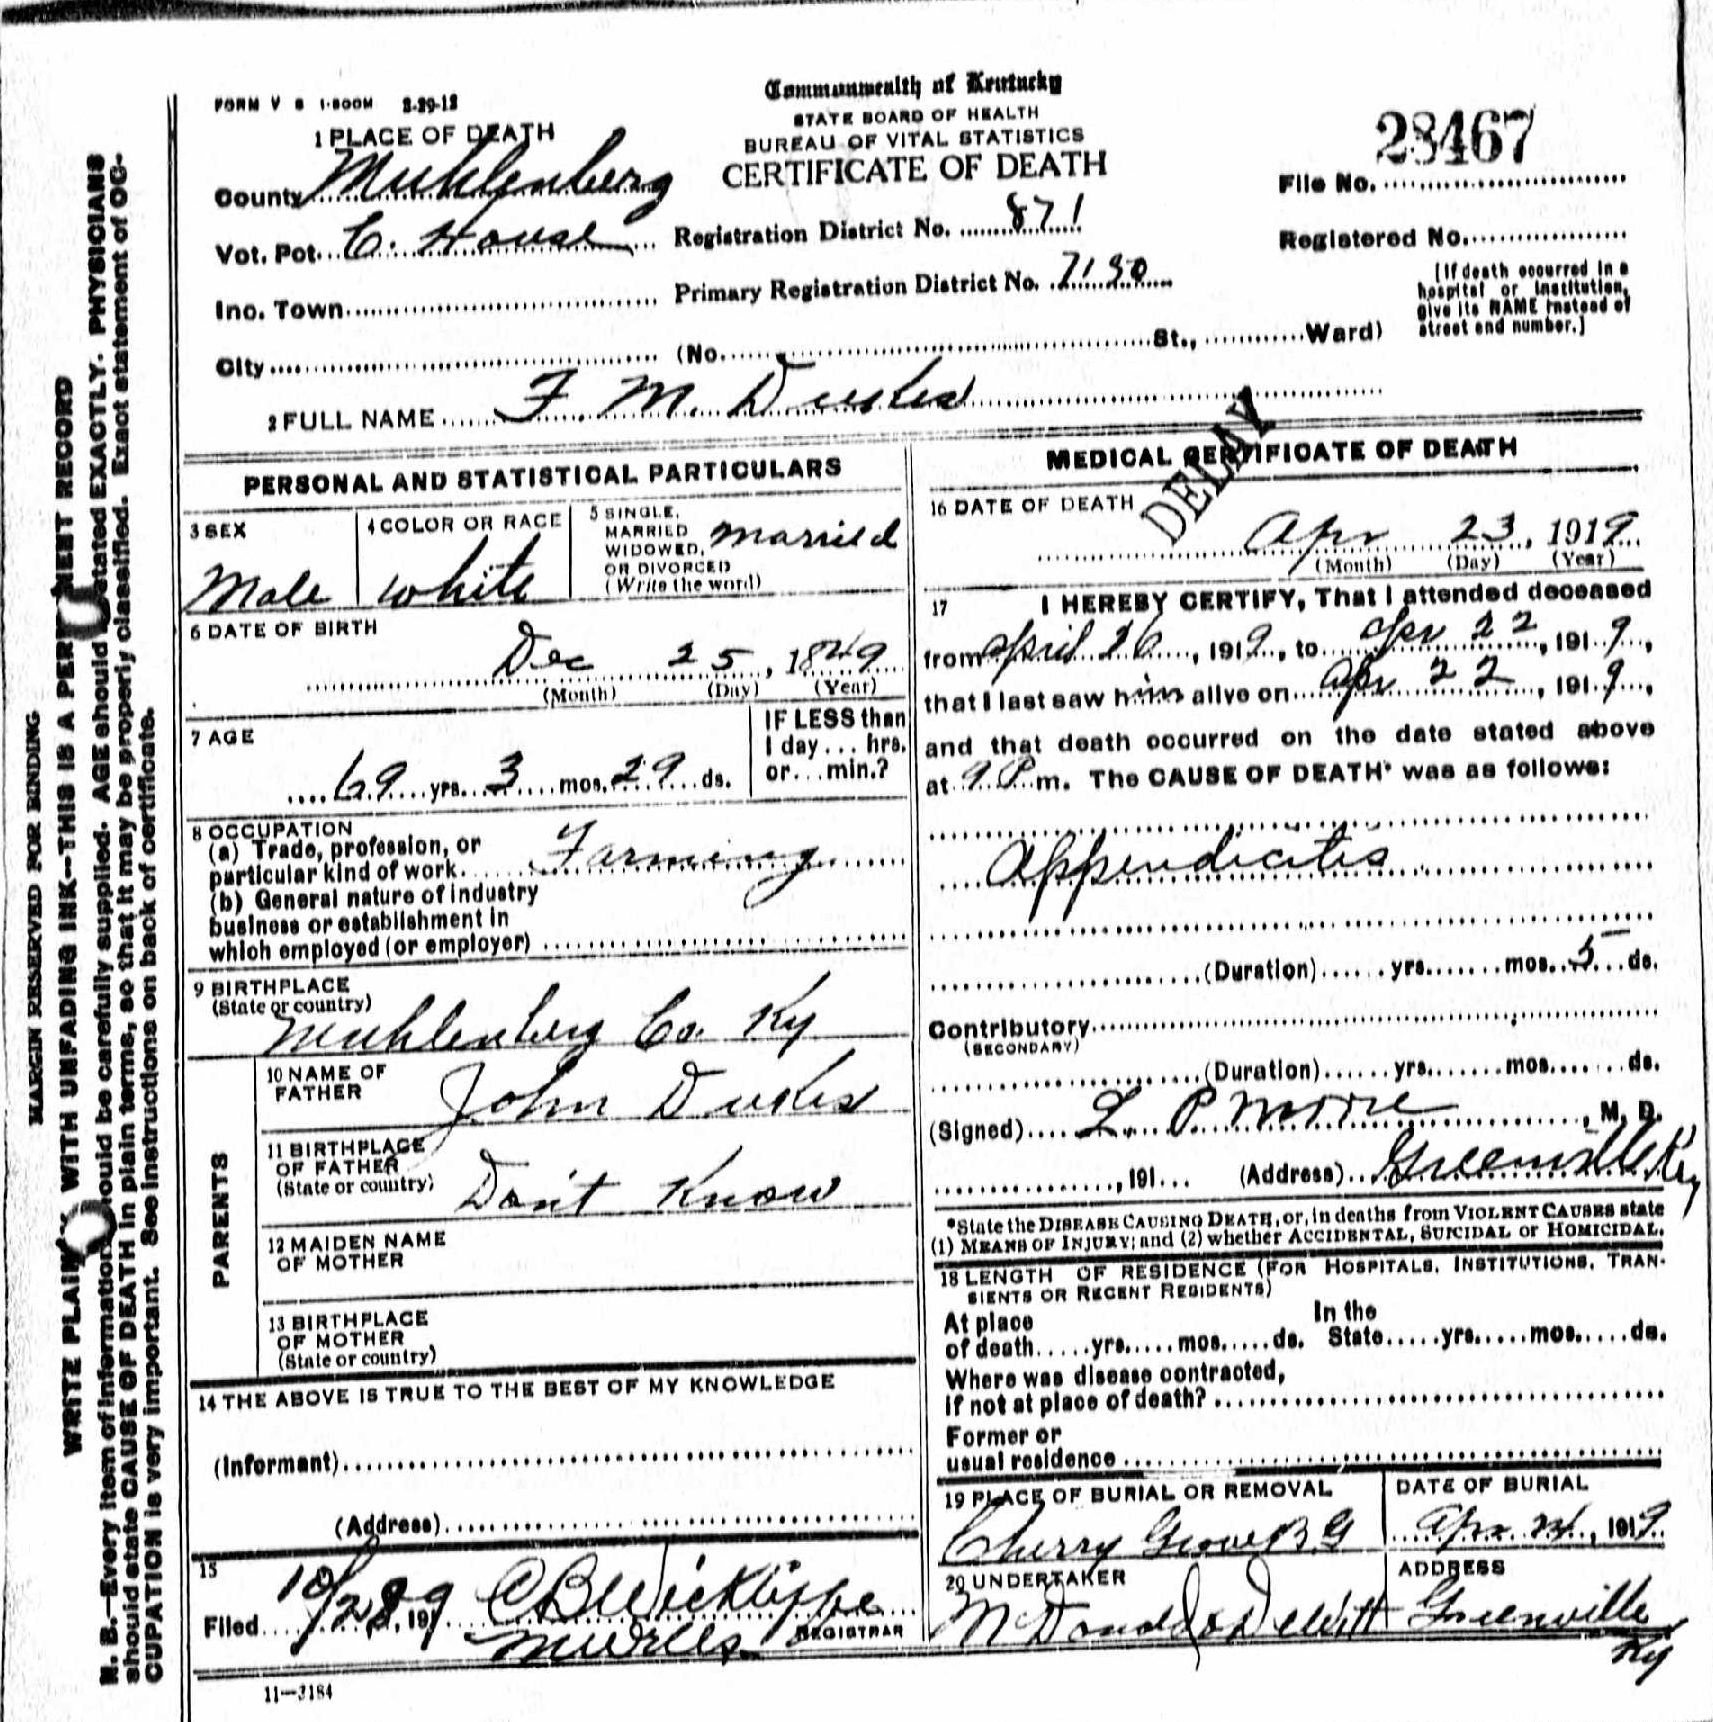 FORM V S 1-500M 3-29-12
Commonwealth of Kentucky
STATE BOARD OF HEALTH
BUREAU OF VITAL STATISTICS
CERTIFICATE OF DEATH
28467
File No.
Registered No.
(If death occurred in a
hospital or institution,
give its NAME instead of
street and number.)
1 PLACE OF DEATH
County Muhlenberg
Vot. Pct. C. House Registration District No. 871
Inc. Town Primary Registration District No. 7130
City (No. St., Ward)
2 FULL NAME F. M. Dukes
DELAY
PERSONAL AND STATISTICAL PARTICULARS
3 SEX
Male
4 COLOR OR RACE
White
5 SINGLE,
MARRIED
WIDOWED,
OR DIVORCED
(Write the word)
Married
6 DATE OF BIRTH
Dec 25, 1849
(Month) (Day) (Year)
7 AGE
69 yrs. 3 mos. 29 ds.
IF LESS than
1 day ... hrs.
or ... min.?
8 OCCUPATION
(a) Trade, profession, or
particular kind of work. Farming
(b) General nature of industry
business or establishment in
which employed (or employer)
9 BIRTHPLACE
(State or country)
Muhlenberg Co. Ky
PARENTS
10 NAME OF
FATHER
John Dukes
11 BIRTHPLACE
OF FATHER
(State or country)
Don't Know
12 MAIDEN NAME
OF MOTHER
13 BIRTHPLACE
OF MOTHER
(State or country)
14 THE ABOVE IS TRUE TO THE BEST OF MY KNOWLEDGE
(Informant)
(Address)
15
Filed 10/28, 1919 C B Wickliffe
REGISTRAR
11—3184
MEDICAL CERTIFICATE OF DEATH
16 DATE OF DEATH
Apr 23, 1919
(Month) (Day) (Year)
17 I HEREBY CERTIFY, That I attended deceased
from April 20, 1919, to Apr 22, 1919,
that I last saw him alive on Apr 22, 1919,
and that death occurred on the date stated above
at 9 P.m. The CAUSE OF DEATH* was as follows:
Appendicites
(Duration) yrs. mos. 5 ds.
Contributory
(SECONDARY)
(Duration) yrs. mos. ds.
(Signed) L. P. Moore, M. D.
, 191 (Address) Greenville Ky
*State the DISEASE CAUSING DEATH, or, in deaths from VIOLENT CAUSES state
(1) MEANS OF INJURY; and (2) whether ACCIDENTAL, SUICIDAL or HOMICIDAL.
18 LENGTH OF RESIDENCE (FOR HOSPITALS, INSTITUTIONS, TRAN-
SIENTS OR RECENT RESIDENTS)
At place In the
of death yrs. mos. ds. State yrs. mos. ds.
Where was disease contracted,
if not at place of death?
Former or
usual residence
19 PLACE OF BURIAL OR REMOVAL
Cherry Grove B G
DATE OF BURIAL
Apr 24, 1919
20 UNDERTAKER
McDonald & DeWitt
ADDRESS
Greenville
Ky
MARGIN RESERVED FOR BINDING
WRITE PLAINLY WITH UNFADING INK—THIS IS A PERMANENT RECORD
N. B.—Every item of information should be carefully supplied. AGE should be stated EXACTLY. PHYSICIANS
should state CAUSE OF DEATH in plain terms, so that it may be properly classified. Exact statement of OC-
CUPATION is very important. See instructions on back of certificate.